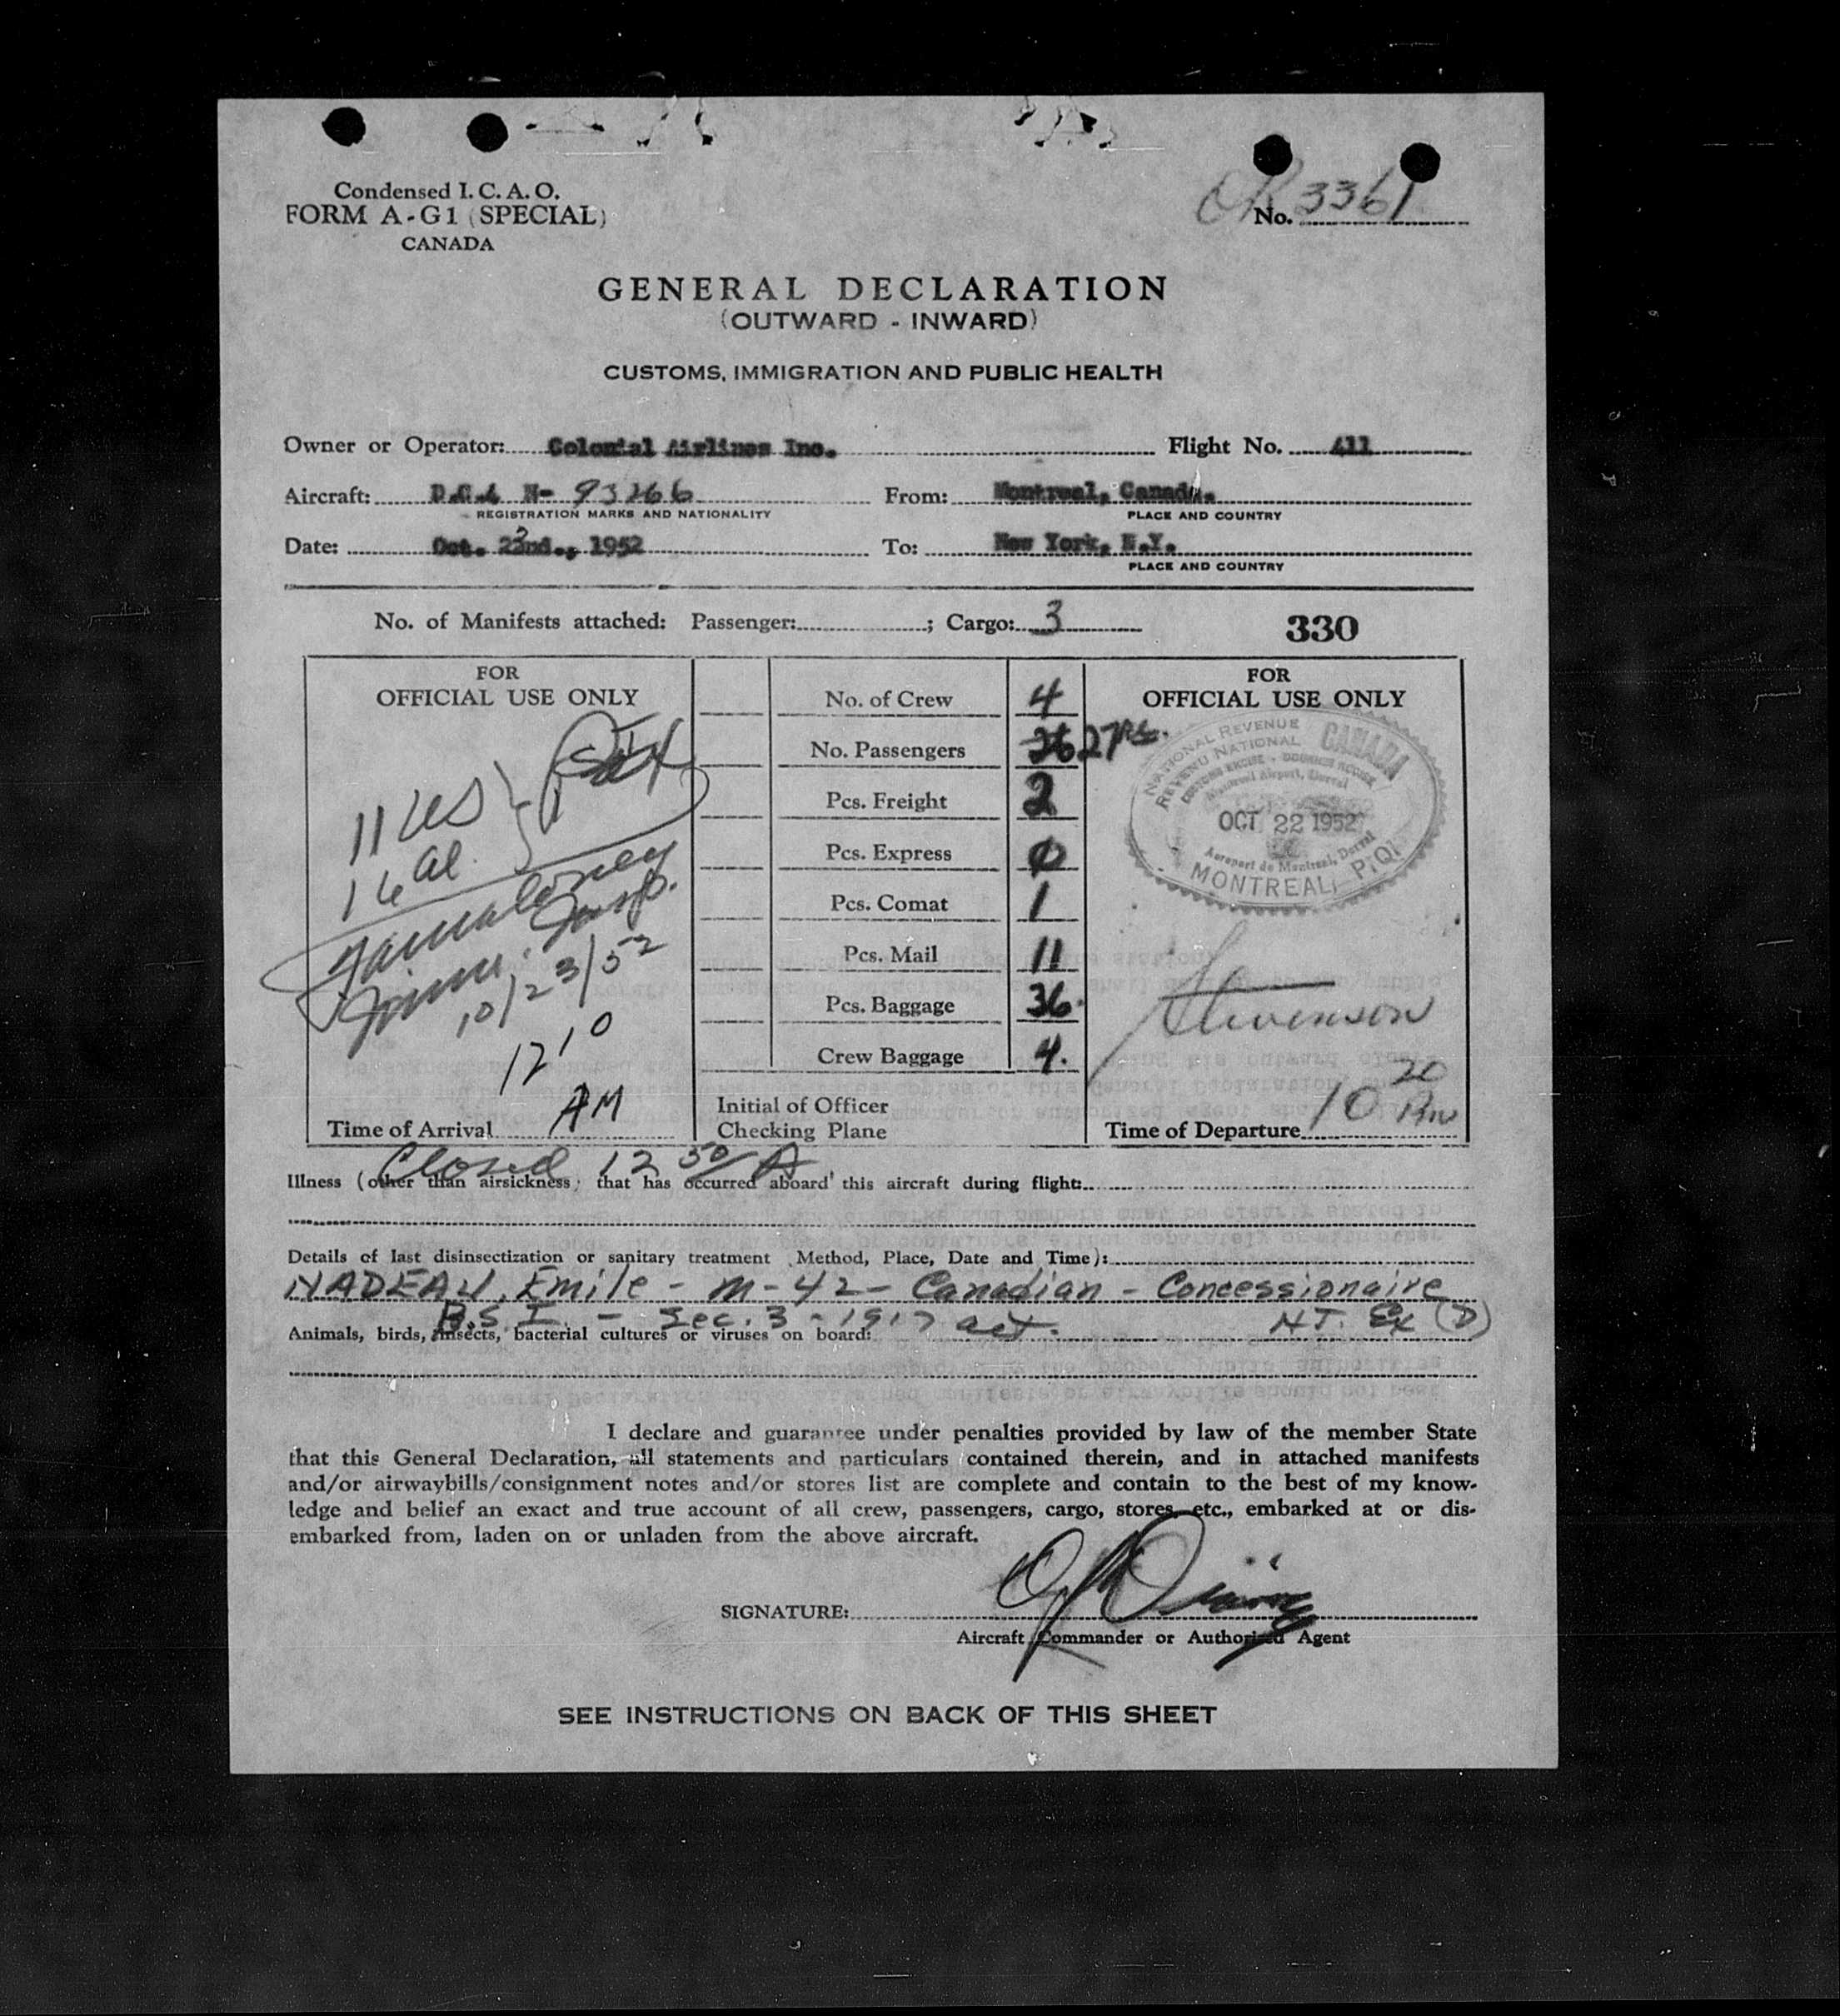 Condensed I. C. A. O.
FORM A-G1 (SPECIAL)
CANADA
No. 3361
GENERAL DECLARATION
(OUTWARD - INWARD)
CUSTOMS, IMMIGRATION AND PUBLIC HEALTH
Owner or Operator: Colonial Airlines Inc. Flight No. 411
Aircraft: D.C.4 N- 93266 From: Montreal, Canada.
REGISTRATION MARKS AND NATIONALITY PLACE AND COUNTRY
Date: Oct. 22nd., 1952 To: New York, N.Y.
PLACE AND COUNTRY
No. of Manifests attached: Passenger: ; Cargo: 3 330
FOR
OFFICIAL USE ONLY
11 US
16 al.
Immi. Insp.
10/23/52
12 10
AM
Time of Arrival
No. of Crew 4
No. Passengers 26 27
Pcs. Freight 2
Pcs. Express 0
Pcs. Comat 1
Pcs. Mail 11
Pcs. Baggage 36.
Crew Baggage 4.
Initial of Officer
Checking Plane
FOR
OFFICIAL USE ONLY
NATIONAL REVENUE CANADA
REVENU NATIONAL
CUSTOMS EXCISE - DOUANES ACCISE
Montreal Airport, Dorval
OCT 22 1952
Aeroport de Montreal, Dorval
MONTREAL, P.Q.
Stevenson
10 20 PM
Time of Departure
Closed 12 50/A
Illness (other than airsickness) that has occurred aboard this aircraft during flight:
Details of last disinsectization or sanitary treatment (Method, Place, Date and Time):
NADEAU, Emile - M - 42 - Canadian - Concessionaire
B.S.I. - Sec. 3 - 1917 act. N.T. Ex (D)
Animals, birds, insects, bacterial cultures or viruses on board:
I declare and guarantee under penalties provided by law of the member State
that this General Declaration, all statements and particulars contained therein, and in attached manifests
and/or airwaybills/consignment notes and/or stores list are complete and contain to the best of my know-
ledge and belief an exact and true account of all crew, passengers, cargo, stores, etc., embarked at or dis-
embarked from, laden on or unladen from the above aircraft.
SIGNATURE:
Aircraft Commander or Authorized Agent
SEE INSTRUCTIONS ON BACK OF THIS SHEET